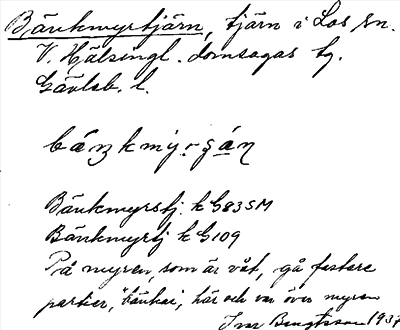 Bänkmyrtjärn, tjärn i Los sn.
V. Hälsingl. domsagas tg.
Gävleb. l.
bäŋkmy̆r-ṣä̀n
Bänkmyrstj. k G83SM
Bänkmyrtj k G109
På myren, som är våt, gå fastare
partier, "bänkar", här och var över myren
Ivar Bengtsson 1937